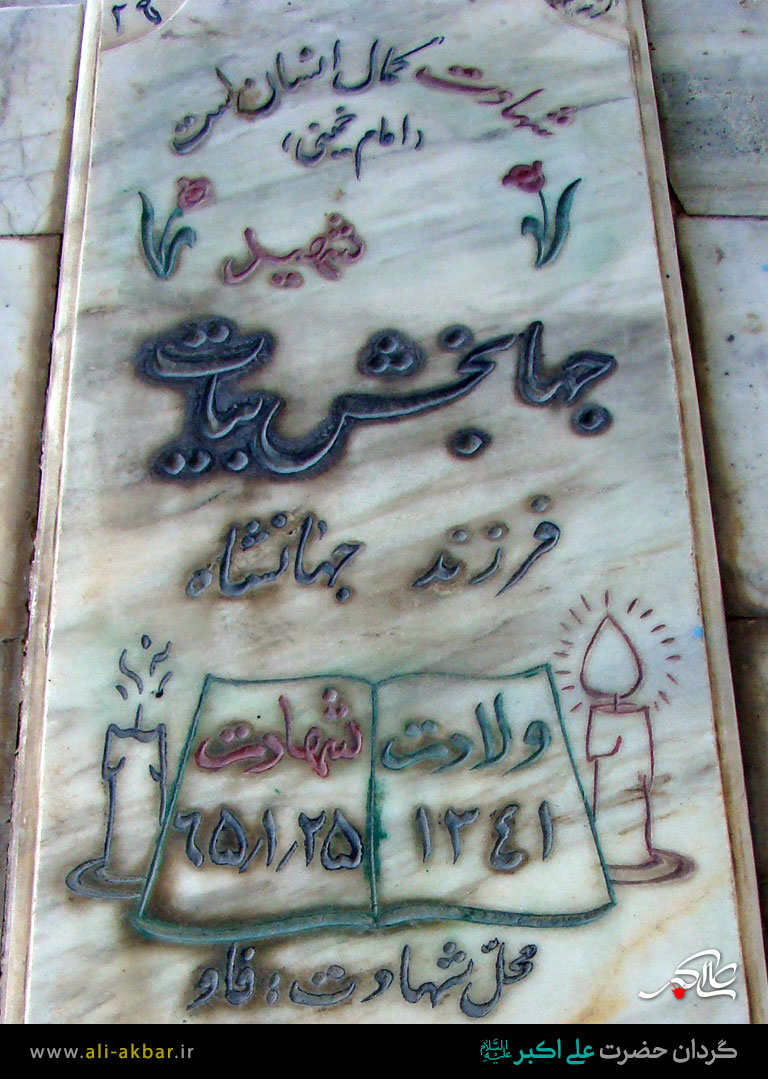 ۲۹
شهادت کمال انسان است
«امام خمینی»
شهید
جهابخش بیات
فرزند جهانشاه
ولادت شهادت
۱۳۴۱ ۶۵/۱/۲۵
محلّ شهادت: فاو
علی اکبر
www.ali-akbar.ir گردان حضرت علی اکبر علیه السلام